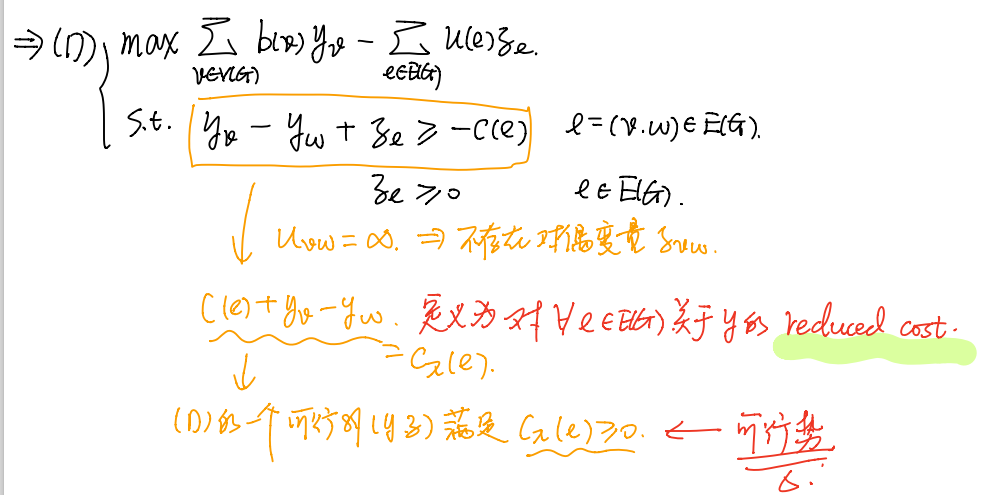 ⇒ (D) max ∑_{v∈V(G)} b(v) y_v − ∑_{e∈E(G)} u(e) z_e.
s.t. y_v − y_w + z_e ≥ −c(e) e=(v.w)∈E(G).
z_e ≥ 0 e∈E(G).
u_{vw} = ∞. ⇒ 不存在对偶变量 z_{vw}.
c(e)+y_v−y_w. 定义为对∀e∈E(G)关于y的 reduced cost.
= c_π(e).
(D)的一个可行对(y z)满足 c_π(e)≥0. ← 可行势